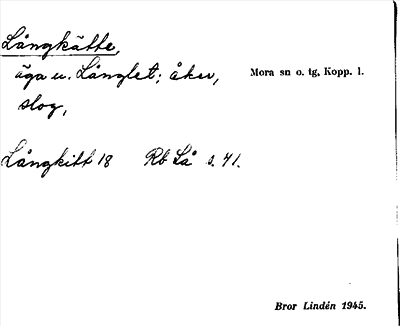 Långkätte,
äga u. Långlet; åker,
slog,
Mora sn o. tg, Kopp. l.
Långkitt 18 Rb Lå s. 41.
Bror Lindén 1945.